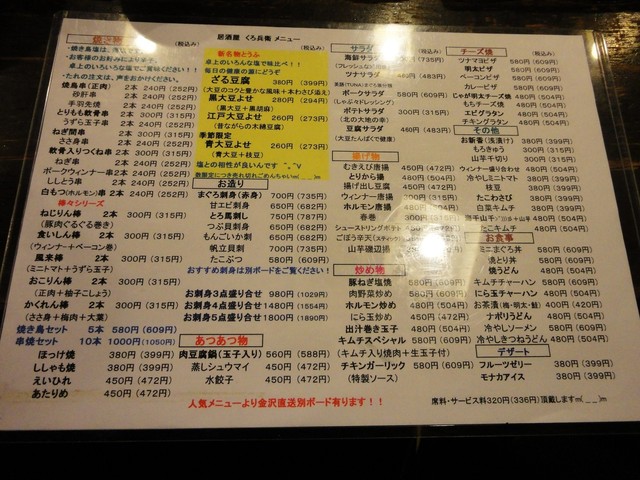 居酒屋 くろ兵衛 メニュー
(税込み)
・お客様のお好みにより
卓上のいろいろな塩でご賞味ください！！
・たれの注文は、声をおかけください。
焼鳥串(正肉) 2本 240円(252円)
砂肝串 2本 240円(252円)
手羽先串 2本 240円(252円)
とりもも軟骨串 2本 300円(315円)
うずら玉子串 2本 240円(252円)
ねぎ間串 2本 300円(315円)
ささ身串 2本 240円(252円)
軟骨入りつくね串 2本 300円(315円)
ねぎ串 2本 240円(252円)
ポークウィンナー串 2本 240円(252円)
ししとう串 2本 240円(252円)
白もつ(ホルモン)串 2本 240円(252円)
棒々シリーズ
ねじりん棒 2本 300円(315円)
(豚肉ぐるぐる巻き)
食いしん棒 2本 300円(315円)
(ウィンナー+ベーコン巻)
風来棒 2本 300円(315円)
(ミニトマト+うずら玉子)
おこりん棒 2本 300円(315円)
(正肉+柚子こしょう)
かくれん棒 2本 300円(315円)
(ささ身+梅肉+大葉)
焼き鳥セット 5本 580円(609円)
串焼セット 10本 1000円(1050円)
ほっけ焼 380円(399円)
ししゃも焼 380円(399円)
えいひれ 450円(472円)
あたりめ 450円(472円)
新名物とうふ (税込み)
卓上のいろんな塩で味比べ！！
毎日の健康の源にどうぞ
ざる豆腐 380円(399円)
(大豆のコクと豊かな風味+本わさび添え)
黒大豆よせ 280円(294円)
(黒大豆+黒胡麻)
江戸大豆よせ 260円(273円)
(昔ながらの木綿豆腐)
季節限定
青大豆よせ 260円(273円)
(青大豆+枝豆)
塩との相性が良いんです
お造り
まぐろ刺身(赤身) 700円(735円)
甘エビ刺身 650円(683円)
とろ馬刺し 750円(787円)
つぶ貝刺身 650円(683円)
もんごいか刺 650円(683円)
帆立貝刺 700円(735円)
たこぶつ 580円(609円)
おすすめ刺身は別ボードをご覧ください！
お刺身3点盛り合せ 980円(1029円)
お刺身4点盛り合せ 1480円(1554円)
お刺身5点盛り合せ 1800円(1890円)
あつあつ物
肉豆腐鍋(玉子入り) 560円(588円)
蒸しシュウマイ 450円(472円)
水餃子 450円(472円)
サラダ (税込み)
海鮮サラダ (735円)
ツナサラダ (483円)
ポークサラダ
(しゃぶ々ドレッシング)
ポテトサラダ 300円(315円)
(北の大地の幸)
豆腐サラダ 460円(483円)
(大豆たんぱくで健康)
揚げ物
むきえび唐揚 450円(472円)
とりから揚 480円(504円)
揚げ出し豆腐 450円(472円)
ウィンナー唐揚 300円(315円)
ホルモン唐揚 480円(504円)
春巻 300円(315円)
シューストリングポテト
ごぼう辛天
山芋磯辺揚
炒め物
豚ねぎ塩焼 580円(609円)
肉野菜炒め 580円(609円)
ホルモン炒め 480円(504円)
にら玉炒め 450円(472円)
出汁巻き玉子 480円(504円)
キムチスペシャル 580円(609円)
(キムチ入り焼肉+生玉子付)
チキンガーリック 580円(609円)
(特製ソース)
チーズ焼 (税込み)
ツナマヨピザ 580円(609円)
明太ピザ 580円(609円)
ベーコンピザ 580円(609円)
カレーピザ 580円(609円)
じゃが明太チーズ焼 480円(504円)
もちチーズ焼 480円(504円)
エビグラタン 480円(504円)
チキングラタン 480円(504円)
その他
お新香(浅漬け) 380円(399円)
もろきゅう 300円(315円)
山芋千切り 300円(315円)
ウィンナー盛り合わせ 480円(504円)
冷やしミニトマト 300円(315円)
枝豆 380円(399円)
たこわさび 380円(399円)
白菜キムチ 380円(399円)
480円(504円)
たこキムチ 480円(504円)
お食事
ミニまぐろ丼 580円(609円)
焼とり丼 580円(609円)
焼うどん 480円(504円)
キムチチャーハン 580円(609円)
にら玉チャーハン 480円(504円)
お茶漬(梅・明太・鮭) 400円(420円)
ナポリうどん 480円(504円)
冷やしソーメン 580円(609円)
冷やしきつねうどん 480円(504円)
デザート
フルーツゼリー 380円(399円)
モナカアイス 380円(399円)
人気メニューより金沢直送別ボード有ります！！
席料・サービス料320円(336円)頂戴しますm(_ _)m